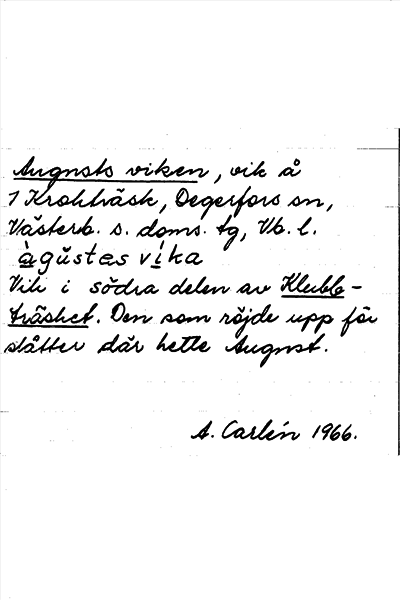 Augusts viken, vik å
7 Krokträsk, Degerfors sn,
Västerb. s. doms. tg, Vb. l.
àgŭstɑs vìka
Vik i södra delen av Klubb-
träsket. Den som röjde upp för
slåtter där hette August.
A. Carlén 1966.